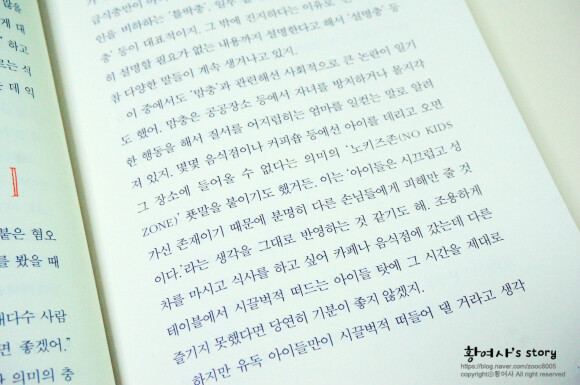 않을
게 대
하고
는 식
데 익
붙은 혐오
를 봤을 때
대다수 사람
면 좋겠어."
과 의미의 충
급식충만이 아니
인을 비하하는 '틀딱충', 일부
충' 등이 대표적이지. 그 밖에 진지하다는 이유로
히 설명할 필요가 없는 내용까지 설명한다고 해서 '설명충' 등
참 다양한 말들이 계속 생겨나고 있지.
이 중에서도 '맘충'과 관련해선 사회적으로 큰 논란이 일기
도 했어. 맘충은 공공장소 등에서 자녀를 방치하거나 몰지각
한 행동을 해서 질서를 어지럽히는 엄마를 일컫는 말로 알려
져 있지. 몇몇 음식점이나 커피숍 등에선 아이를 데리고 오면
그 장소에 들어올 수 없다는 의미의 '노키즈존(NO KIDS
ZONE)' 푯말을 붙이기도 했거든. 이는 '아이들은 시끄럽고 성
가신 존재이기 때문에 분명히 다른 손님들에게 피해만 줄 것
이다.'라는 생각을 그대로 반영하는 것 같기도 해. 조용하게
차를 마시고 식사를 하고 싶어 카페나 음식점에 갔는데 다른
테이블에서 시끌벅적 떠드는 아이들 탓에 그 시간을 제대로
즐기지 못했다면 당연히 기분이 좋지 않겠지.
하지만 유독 아이들만이 시끌벅적 떠들어 댈 거라고 생각
황여사's story
https://blog.naver.com/zooc8005
copyright©황여사 All right reserved